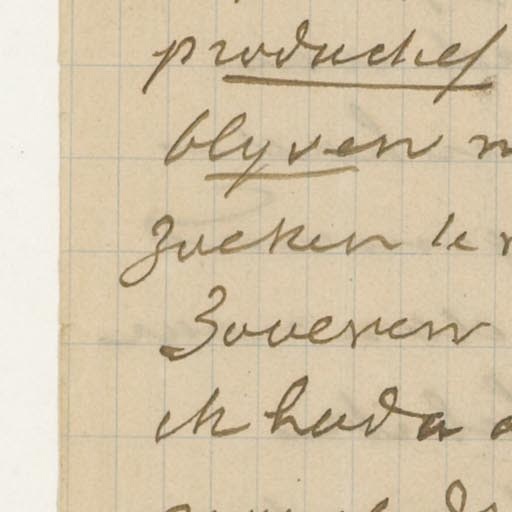 productief
blyven
zoeken te
Zooveren
ik hada